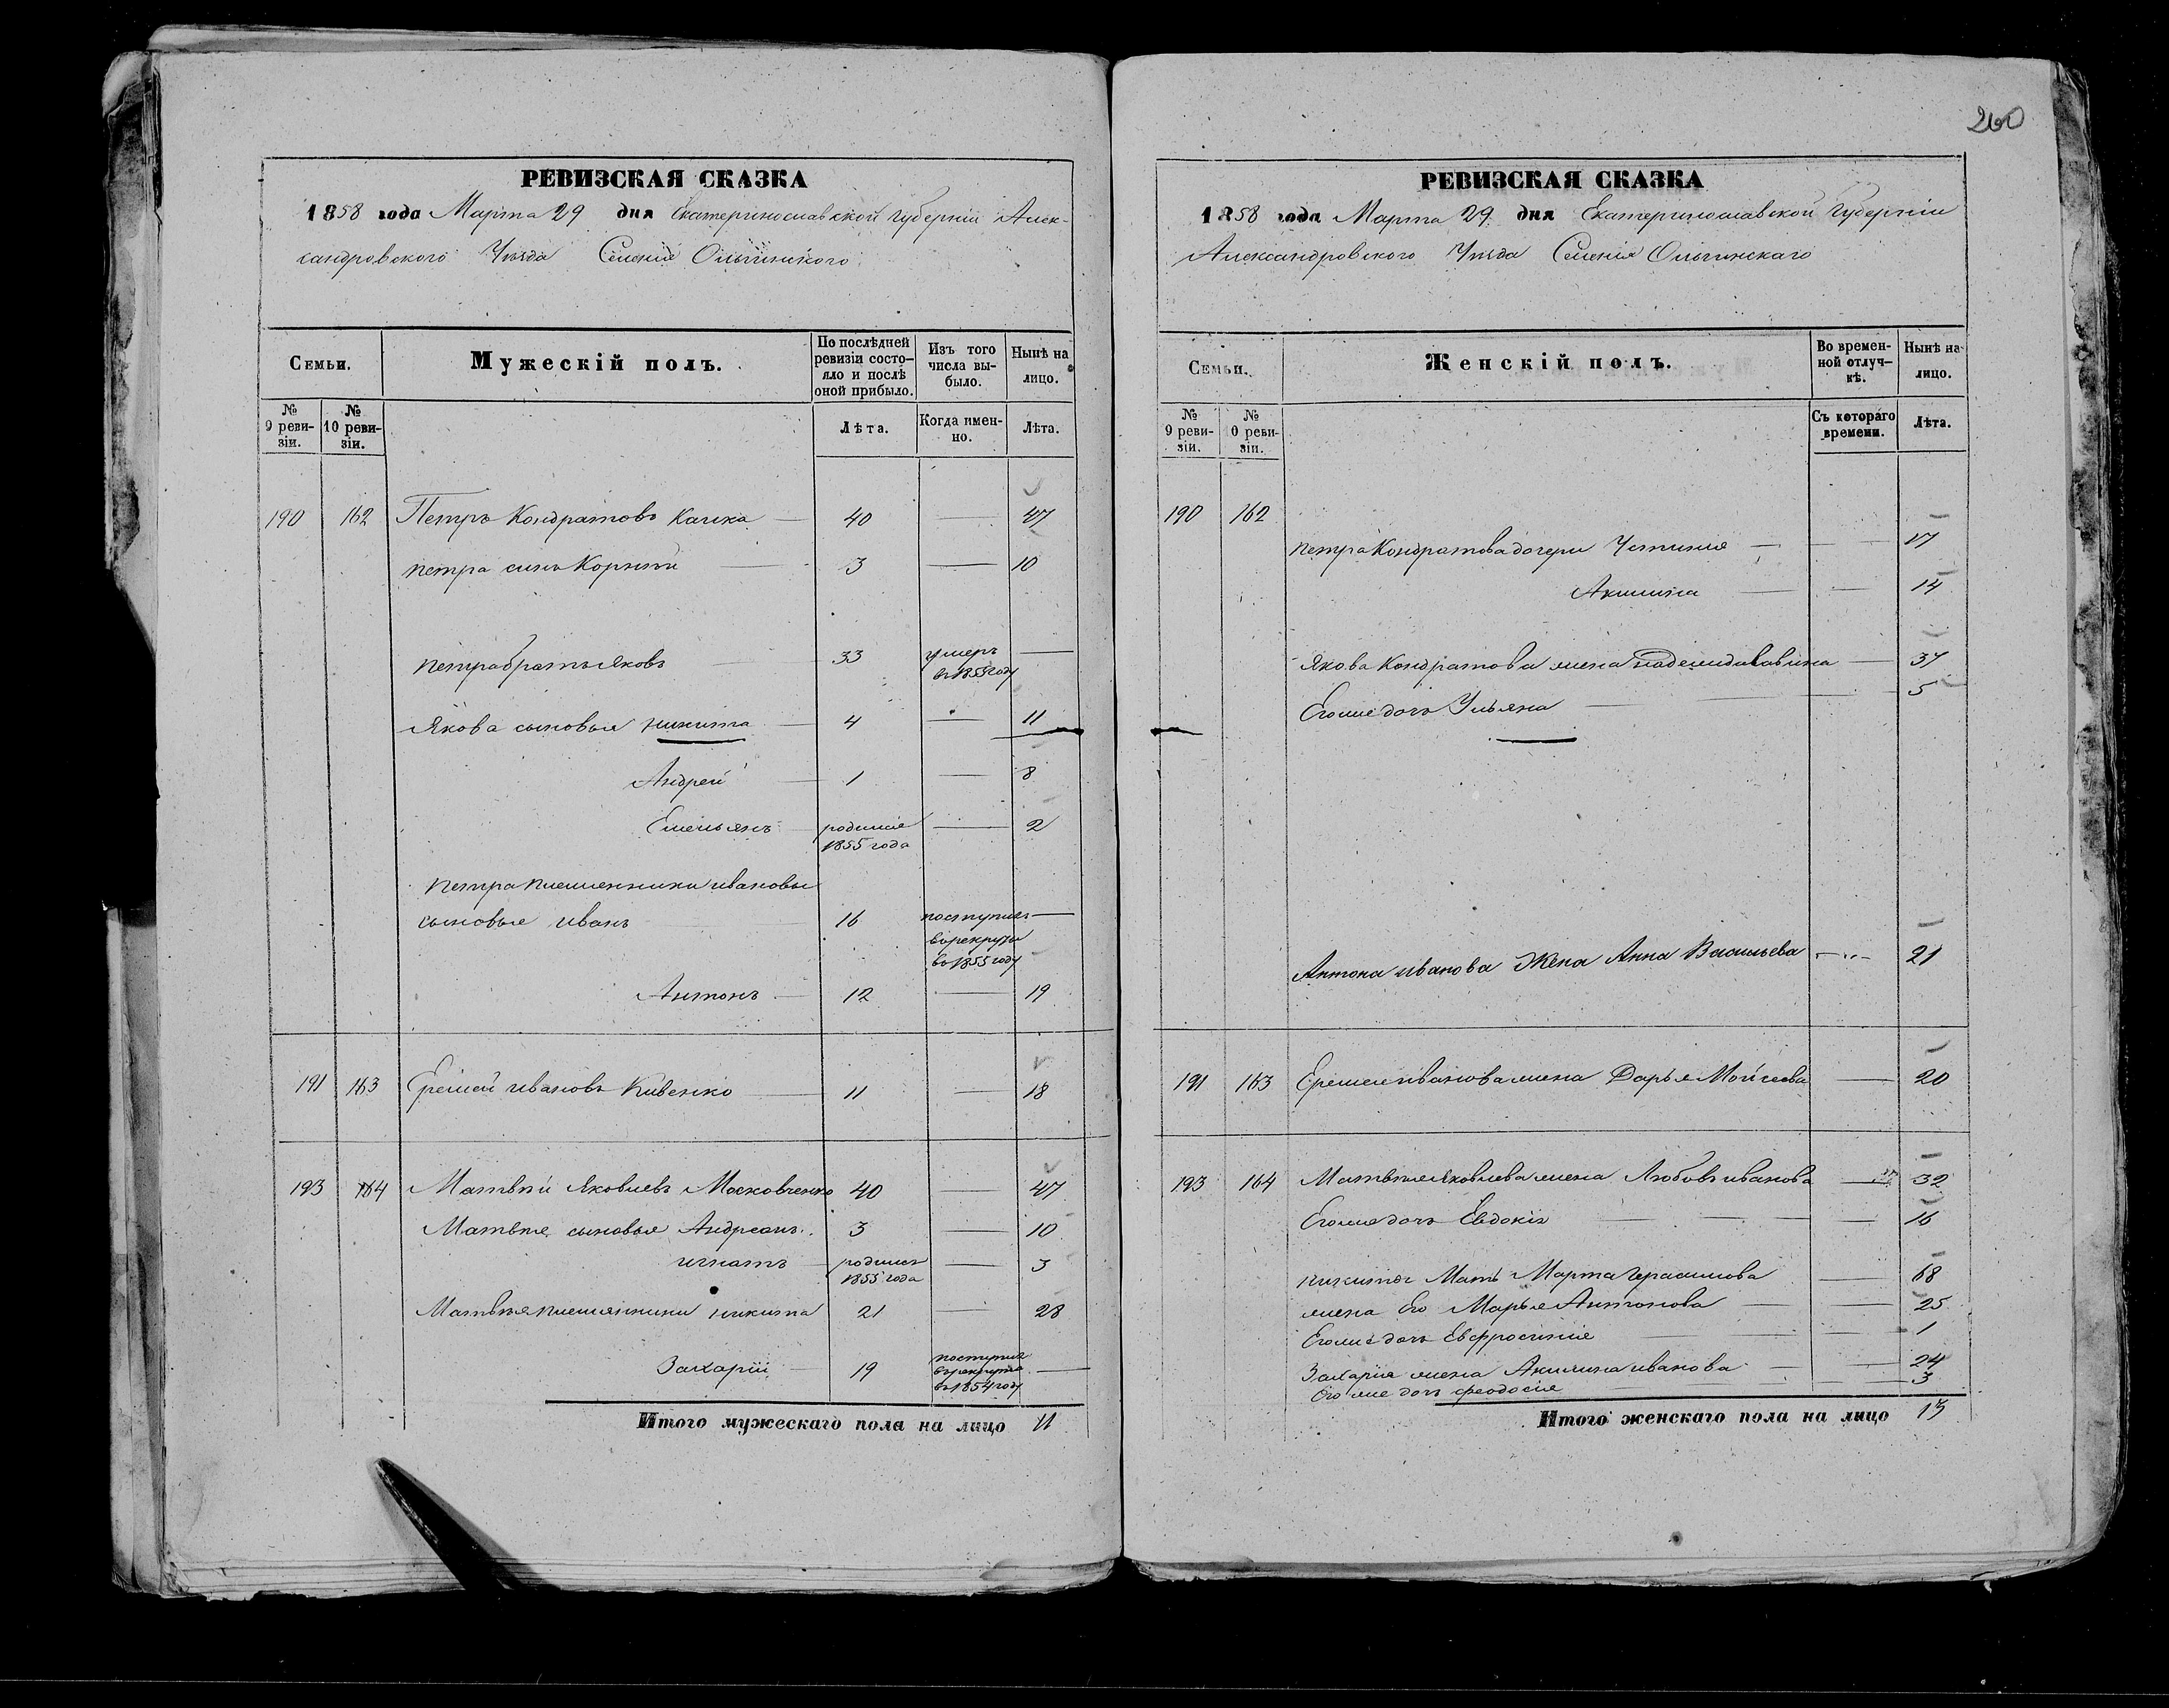 260
РЕВИЗСКАЯ СКАЗКА
1858 года Марта 29 дня Екатеринославской губерніи Алек-
сандровского Уѣзда Селенія Ольгинского
Семьи.
Мужескій полъ.
По послѣдней ревизіи состо-яло и послѣ оной прибыло.
Изъ того числа вы-было.
Нынѣ на лицо.
№ 9 реви-зіи.
№ 10 реви-зіи.
Лѣта.
Когда имен-но.
Лѣта.
190 162 Петръ Кондратовъ Качка — 40 — 47
петра сынъ Корнѣй — 3 — 10
петра братъ яковъ — 33 умеръ —
въ 1855 году
Якова сыновья никита — 4 — 11
Андрей — 1 — 8
Емельянъ — родился — 2
1855 года
петра племянники ивановы
сыновья иванъ — 16 поступилъ —
в рекруты
въ 1855 году
Антонъ — 12 — 19
191 163 Еремей ивановъ Кивенко — 11 — 18
193 164 Матвѣй яковлевъ Московченко 40 — 47
Матвѣя сыновья Андреанъ 3 — 10
игнатъ — родился — 3
1855 года
Матвѣя племянники никита 21 — 28
Захарій — 19 поступил —
в рекрута
въ 1854 году
Итого мужескаго пола на лицо 11
РЕВИЗСКАЯ СКАЗКА
1858 года Марта 29 дня Екатеринославской Губерніи
Александровского Уѣзда Селенія Ольгинскаго
Семьи.
Женскій полъ.
Во времен-ной отлуч-кѣ.
Нынѣ на лицо.
№ 9 реви-зіи.
№ 0 реви-зіи.
Съ котораго времени.
Лѣта.
190 162
петра Кондратова дочери Устинія — — 17
Акилина — — 14
якова Кондратова жена — 37
Егоже дочь Ульяна — — 5
Антона иванова Жена Анна Васильева — 21
191 163 Еремея иванова жена Дарья Мойсеева — 20
193 164 Матвѣя яковлева жена Любовь иванова — 32
Егоже дочь Евдокія — — 16
никиты Мать Марта Герасимова — 68
жена Его Марья Антонова — — 25
Егоже дочь Евфросинія — — 1
Захарія жена Акилина иванова — — 24
Его же дочь феодосія — 3
Итого женскаго пола на лицо 13